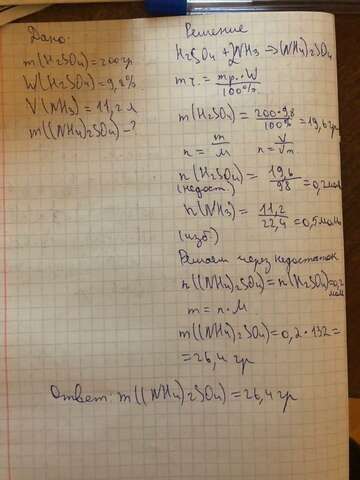 Дано:
m(H2SO4) = 200 гр.
W(H2SO4) = 9,8%
V(NH3) = 11,2 л
m((NH4)2SO4) - ?
Решение
H2SO4 + 2NH3 => (NH4)2SO4
m ч. = mр. · W / 100%.
m(H2SO4) = 200·9,8 / 100% = 19,6 гр
n = m / M n = V / Vm
n(H2SO4) = 19,6 / 98 = 0,2 моль
(недост.)
n(NH3) = 11,2 / 22,4 = 0,5 моль
(изб.)
Решаем через недостаток
n((NH4)2SO4) = n(H2SO4) = 0,2 моль
m = n · M
m((NH4)2SO4) = 0,2 · 132 =
= 26,4 гр
Ответ: m((NH4)2SO4) = 26,4 гр